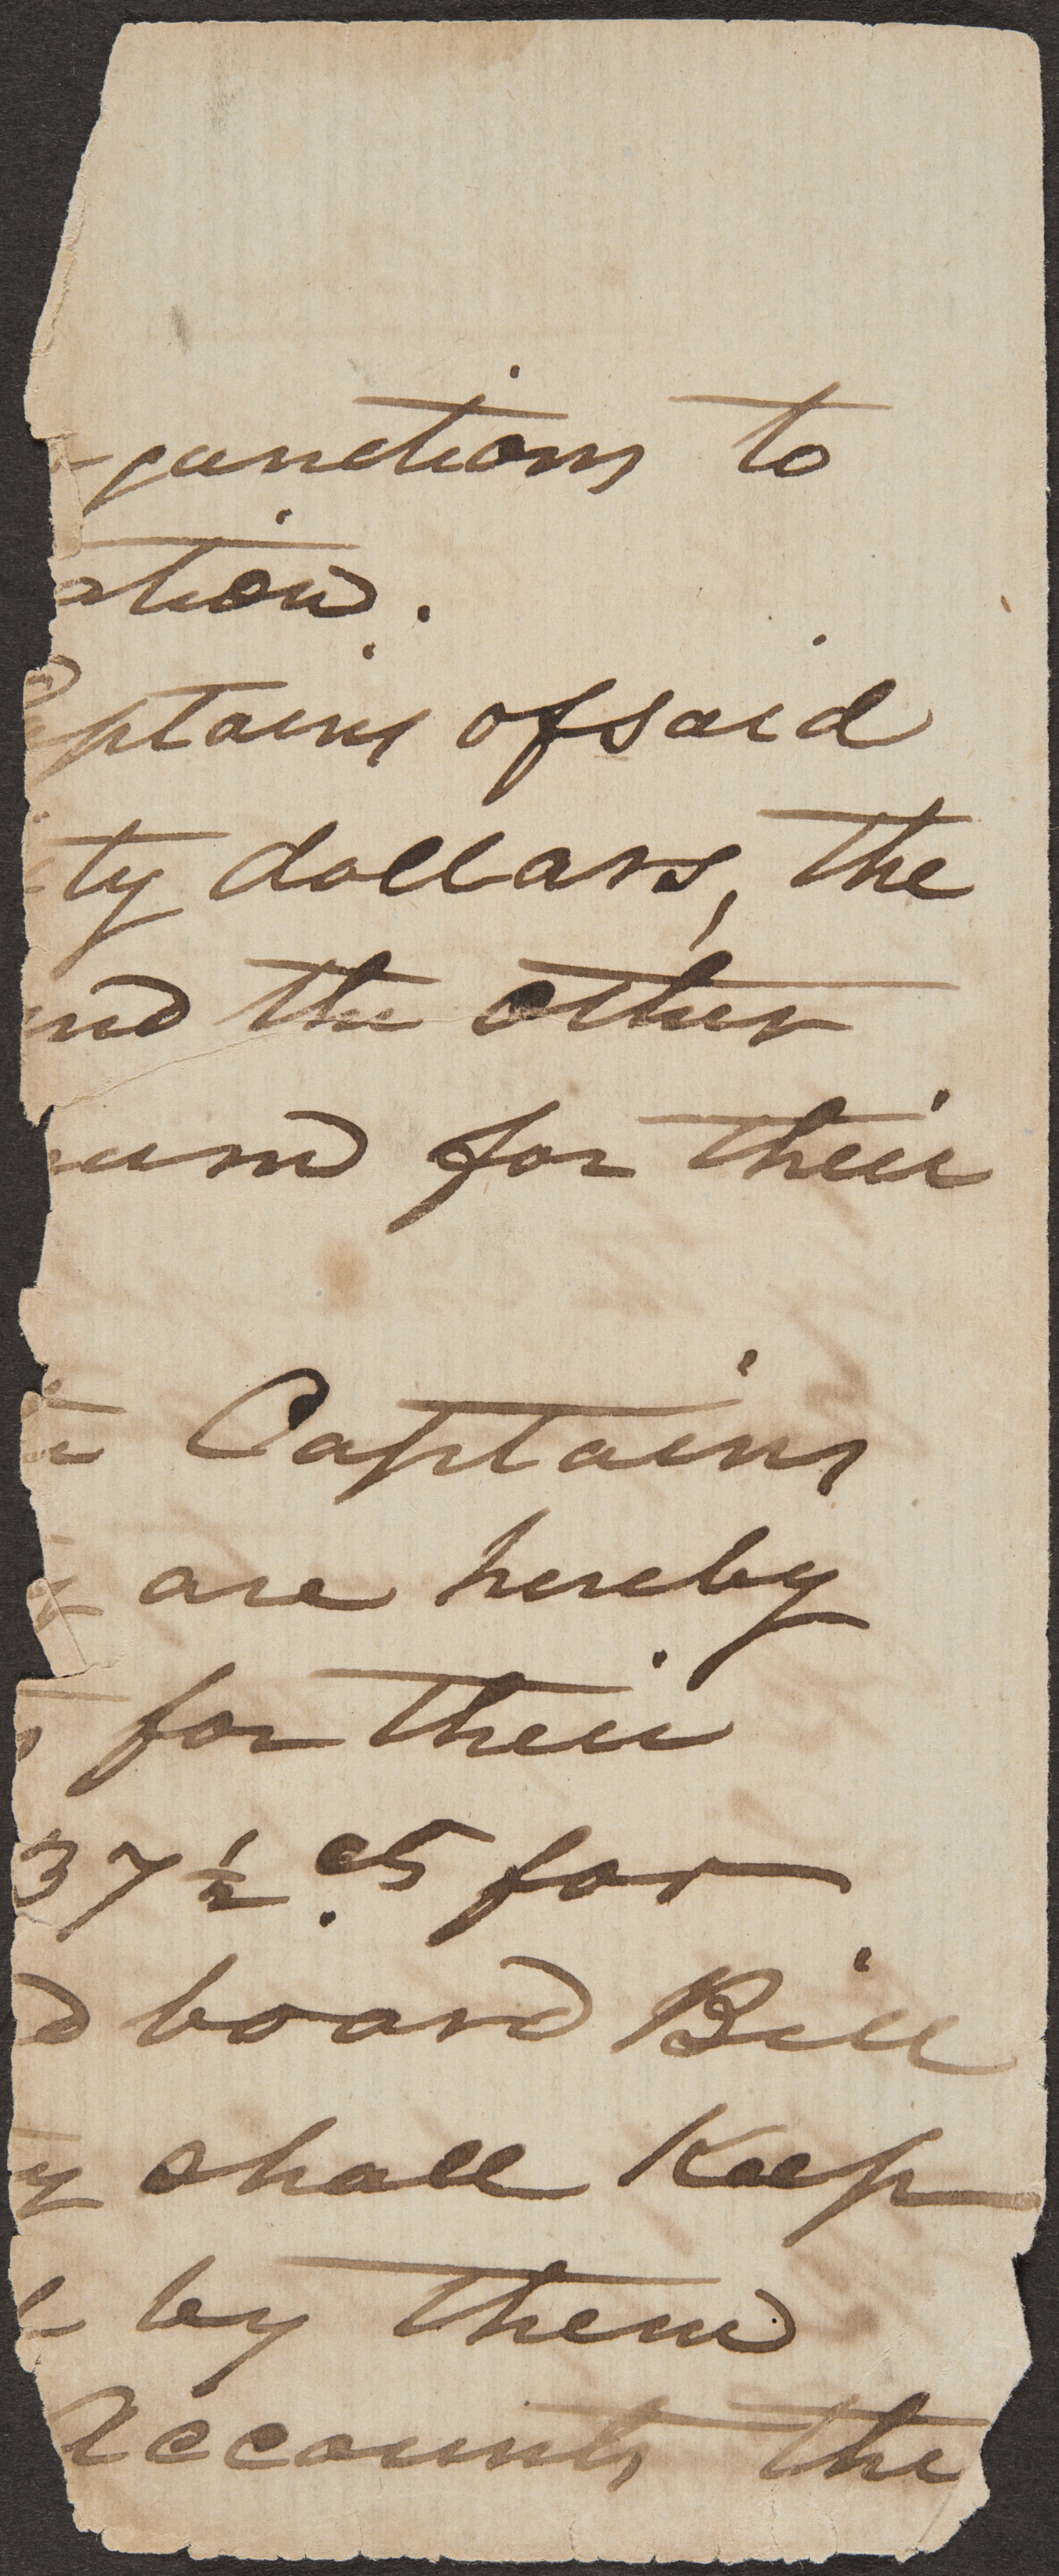 -junctions to
ation.
aptains of said
ty dollars, the
nd the other
um for their
Captains
are hereby
for their
37 ½ cs for
d board Bill
y shall Keep
by them
Accounts the